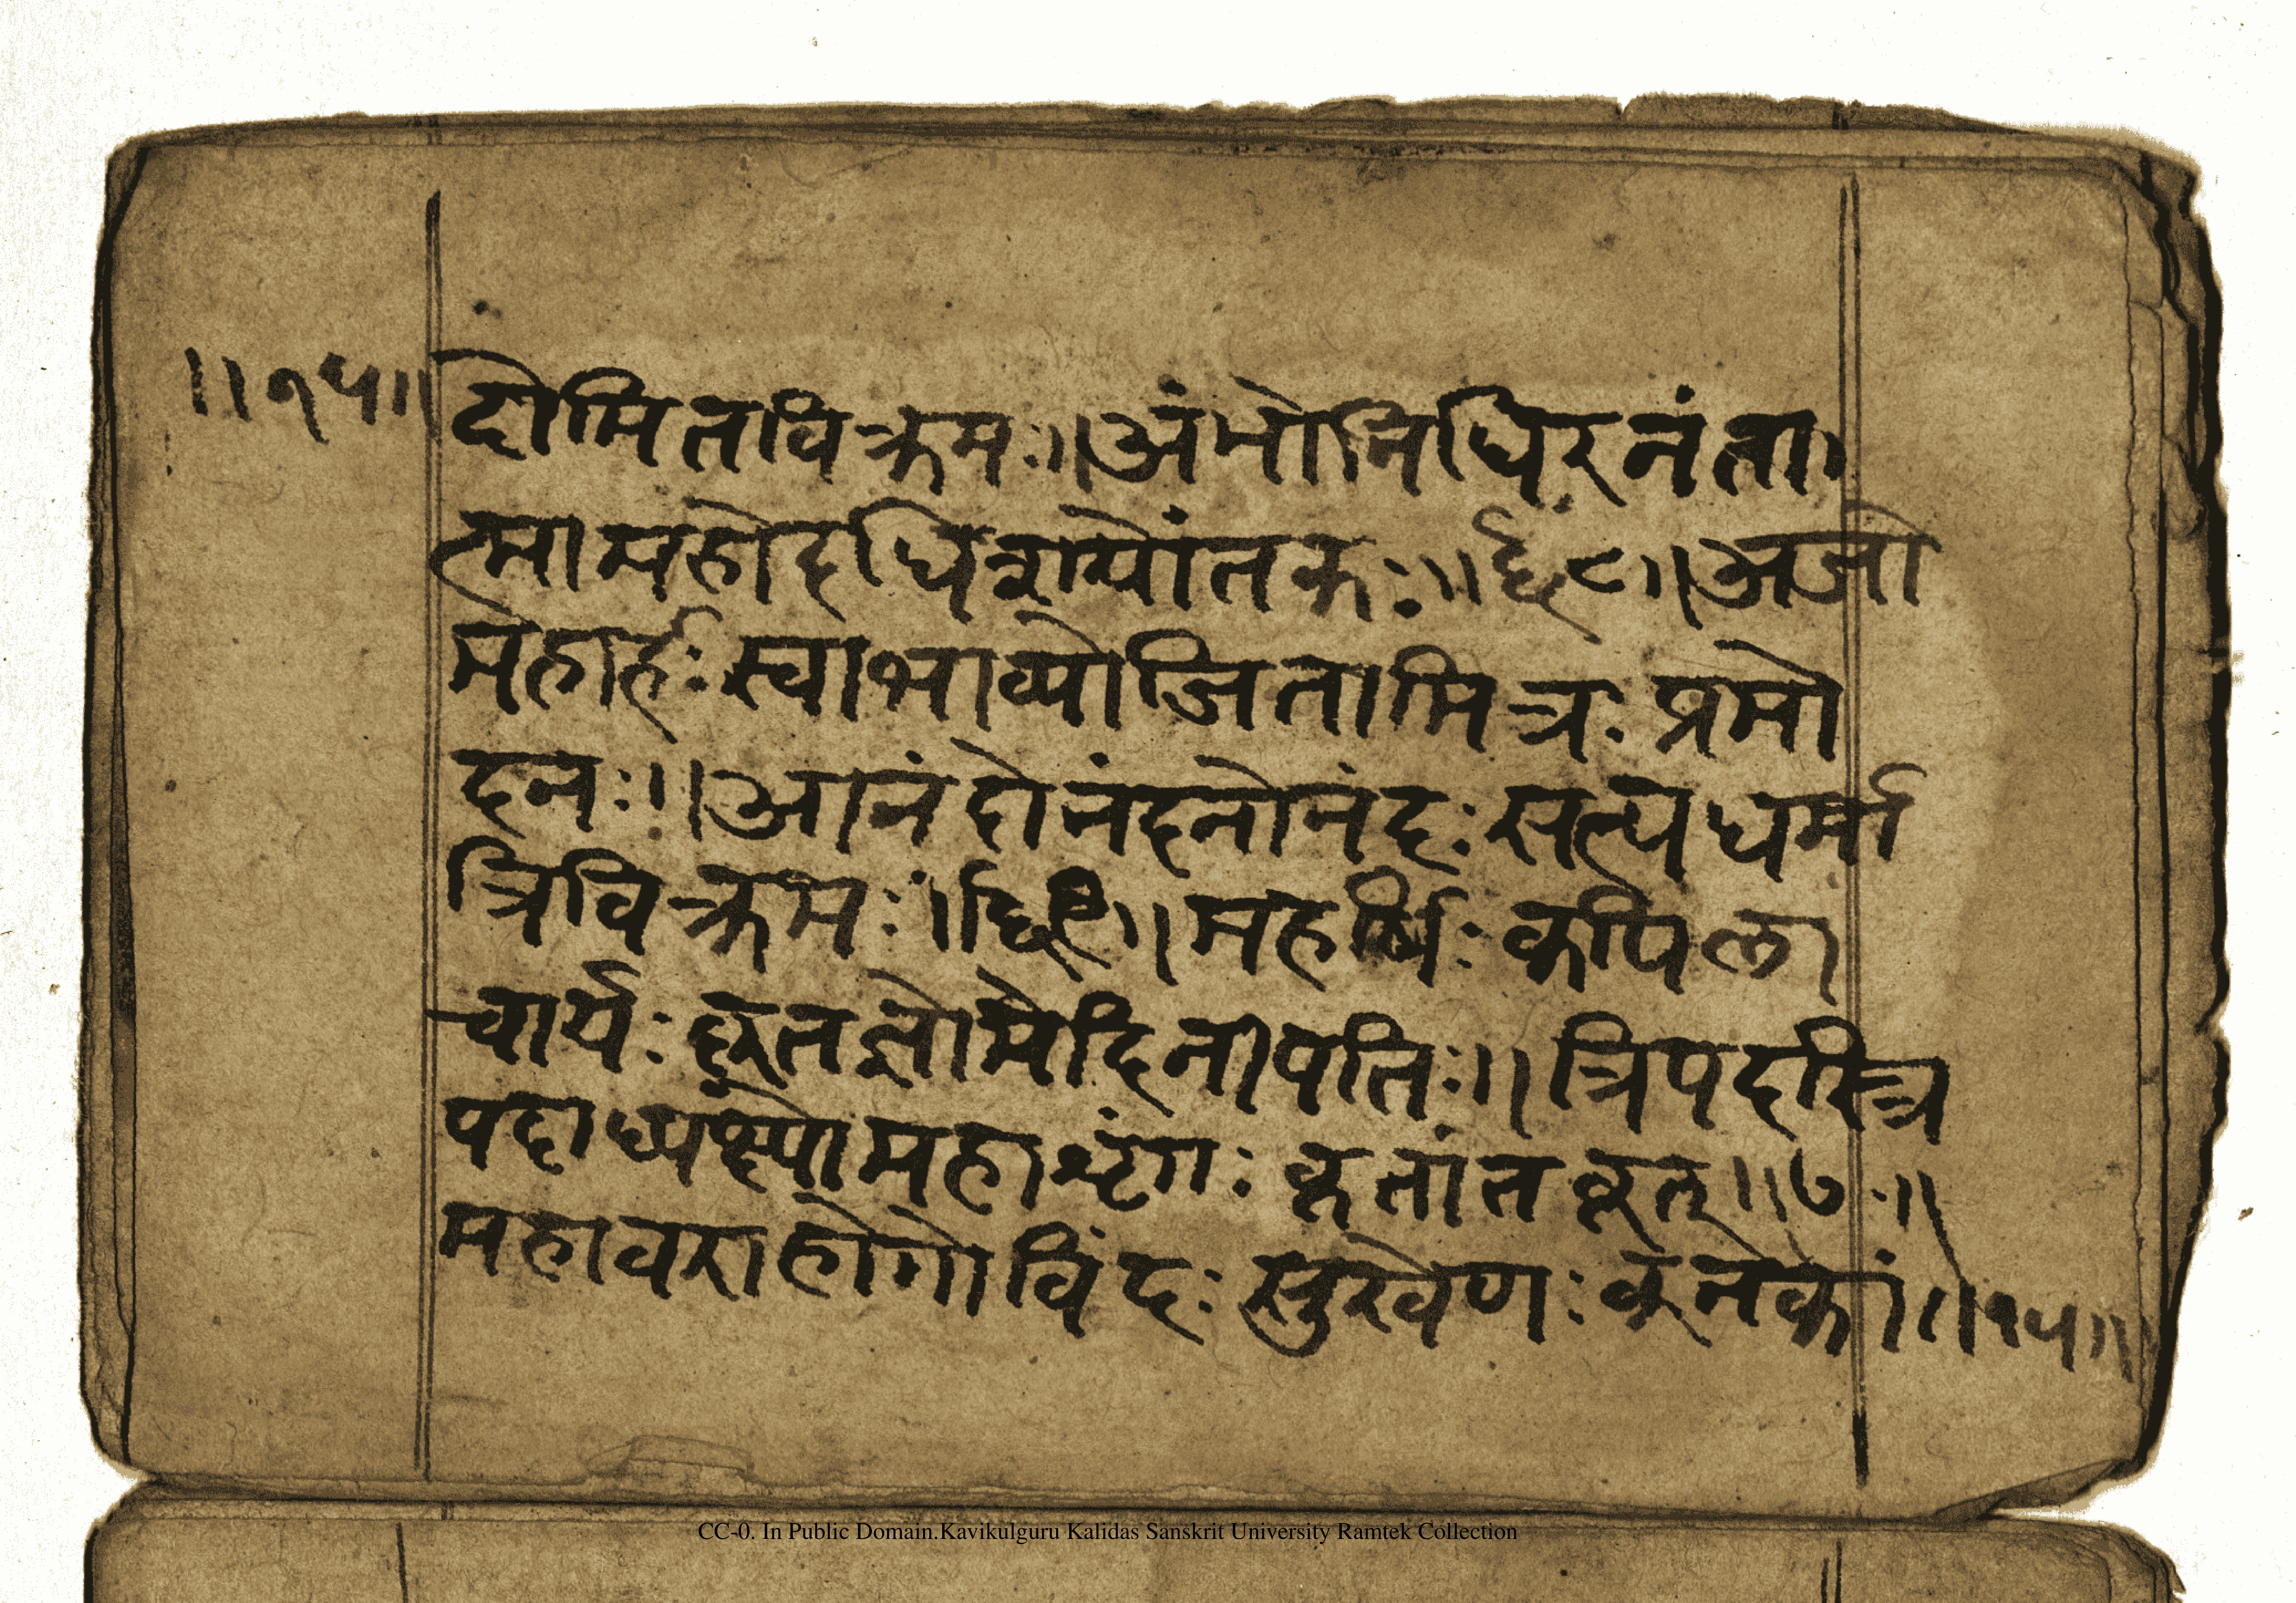 ॥१५॥ दोमितविक्रमः॥अंभोनिधिरनंता
त्मामहोदधिशयोंतकः॥६८॥अजो
महार्हःस्वाभाव्योजितामित्रःप्रमो
दनः॥आनंदोनंदनोनंदःसत्यधर्मा
त्रिविक्रमः॥६९॥महर्षिःकपिला
चार्यःकृतज्ञोमेदिनीपतिः॥त्रिपदस्त्रि
पदाध्यक्ष्योमहाशृंगःकृतांतकृत्॥७०॥
महावराहोगोविंदःसुखेणःकनकां॥१५॥
CC-0. In Public Domain.Kavikulguru Kalidas Sanskrit University Ramtek Collection